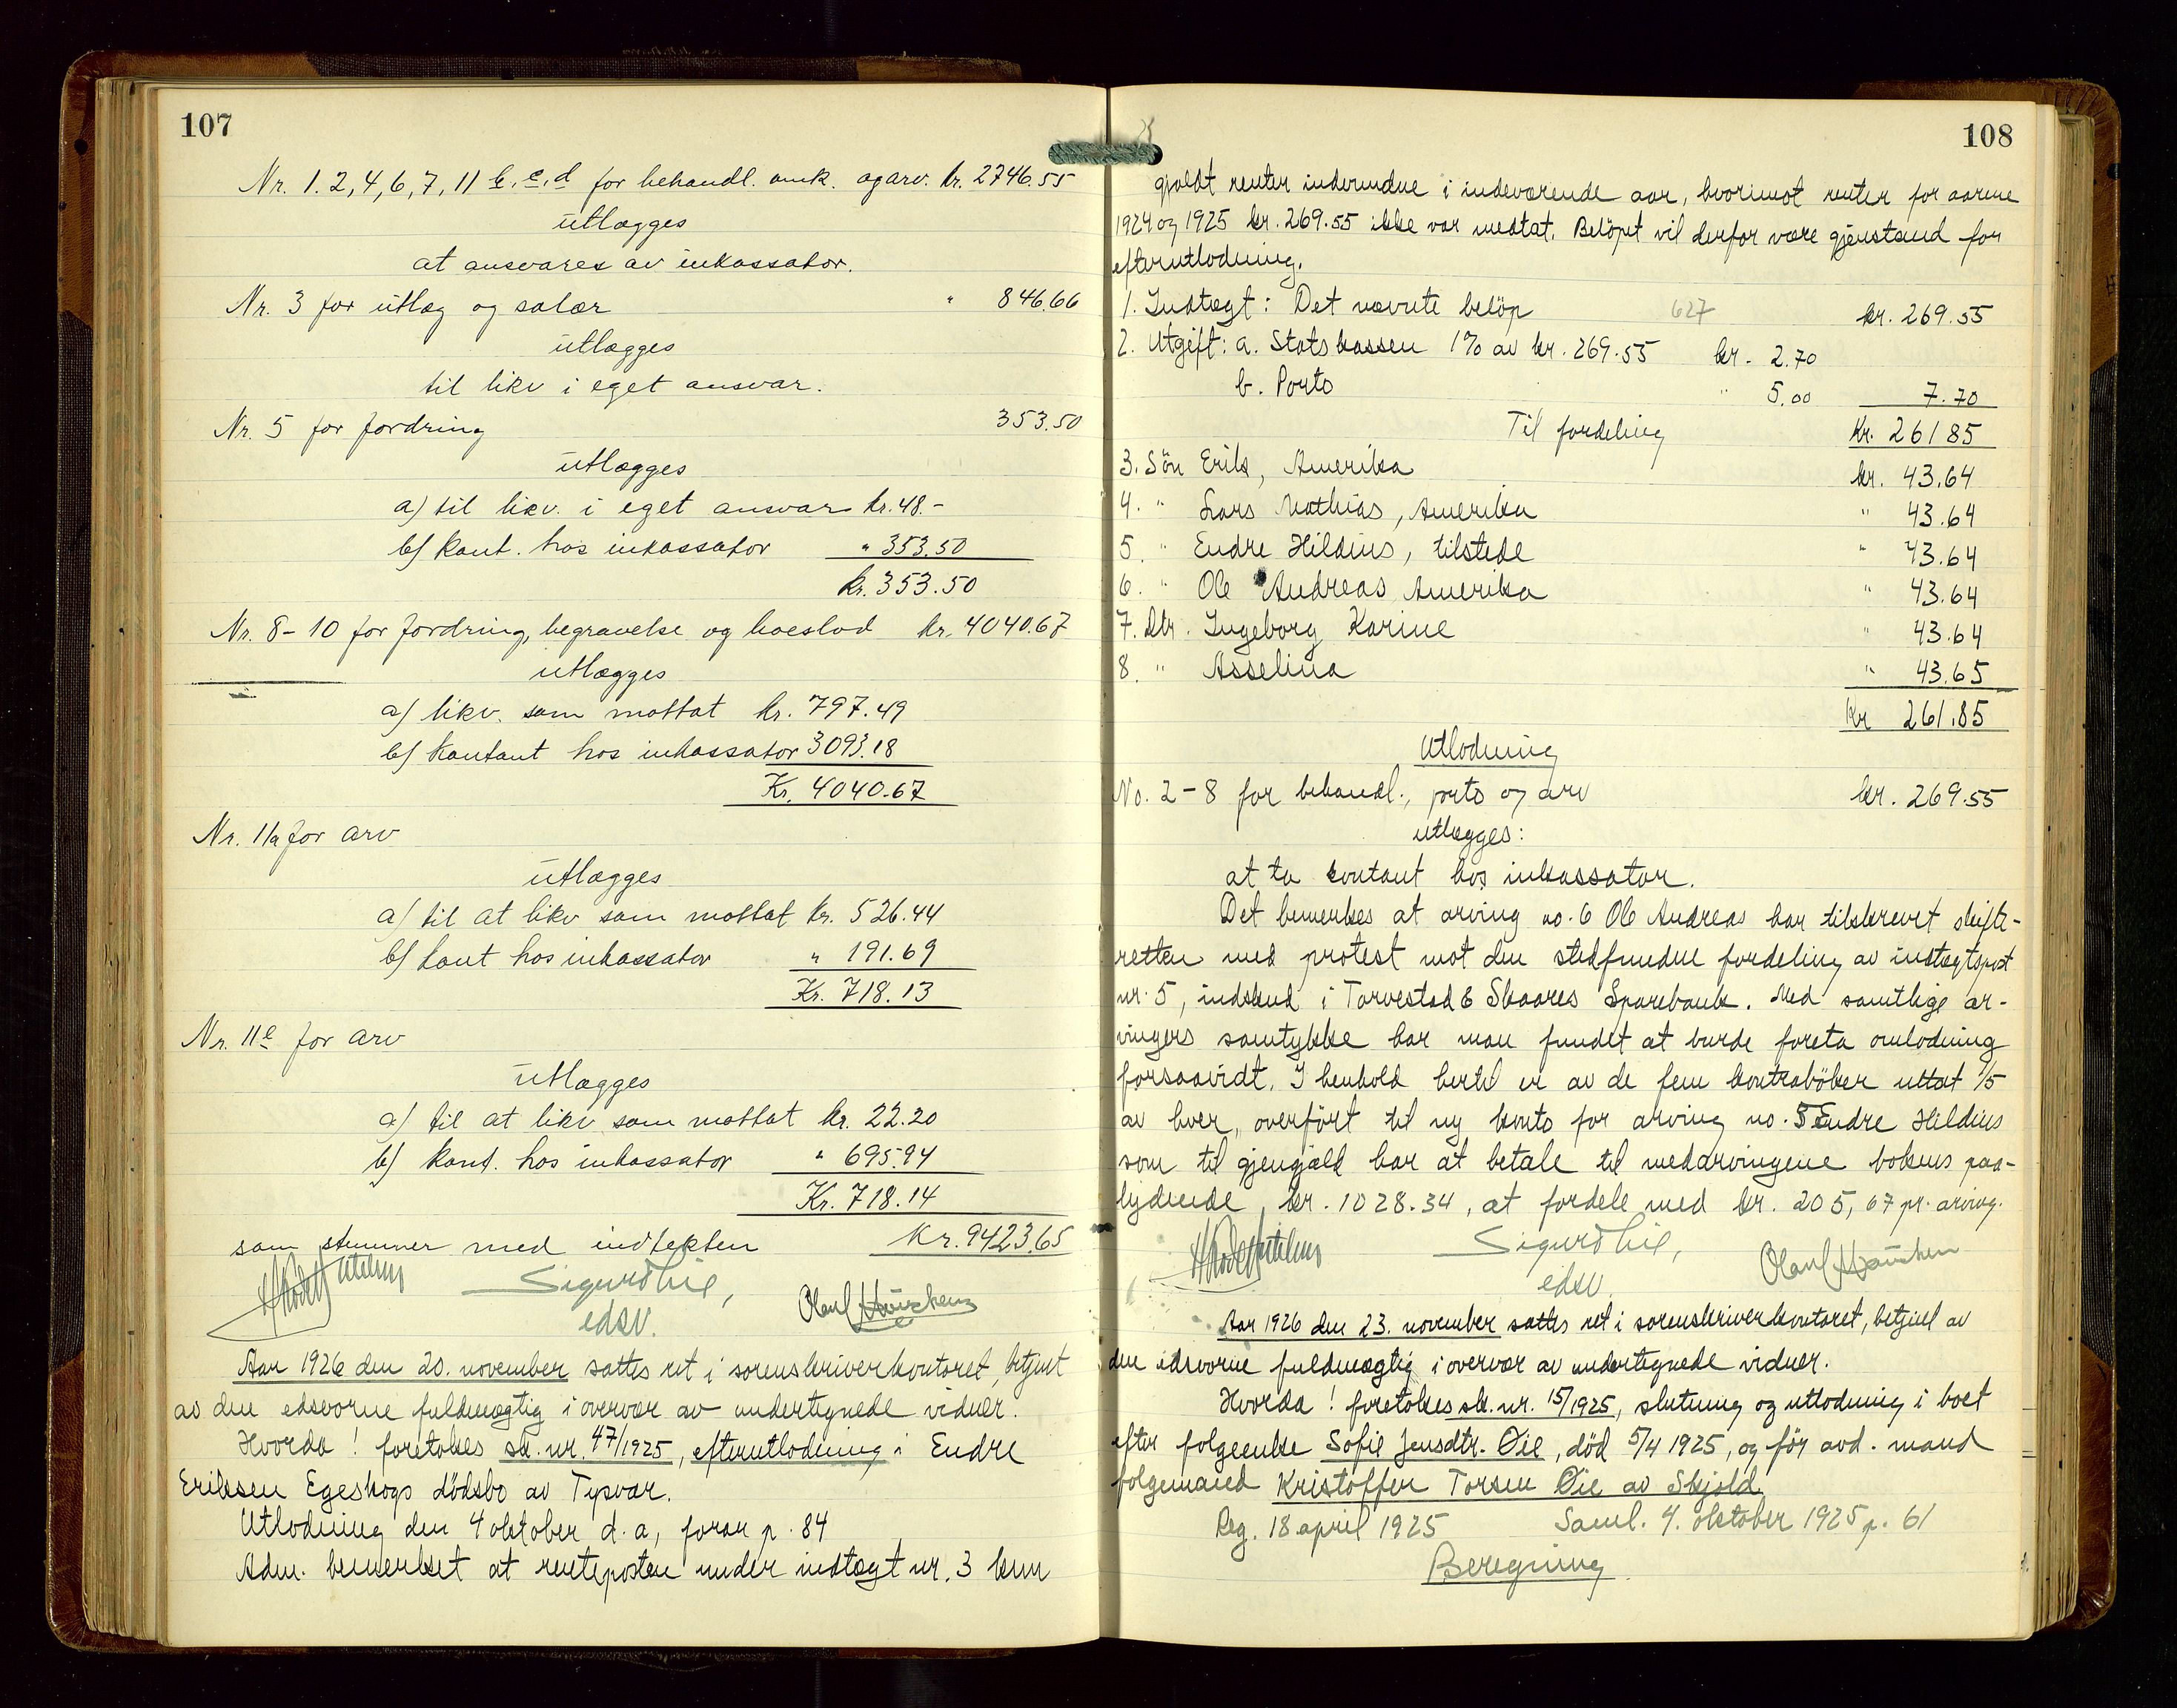 107
Nr. 1. 2, 4, 6, 7, 11 b, c, d for behandl. omk. og arv. kr. 2746.55
utlægges
at ansvares av inkassator.
Nr. 3 for utlæg og salær " 846.66
utlægges
til likv i eget ansvar.
Nr. 5 for fordring 353.50
utlægges
a) til likv. i eget ansvar kr. 48.-
b) kont. hos inkassator " 353.50
kr. 353.50
Nr. 8-10 for fordring, begravelse og boeslod kr. 4040.67
utlægges
a) likv. som mottat kr. 797.49
b) kontant hos inkassator 3093.18
Kr. 4040.67
Nr. 11a for arv
utlægges
a) til at likv som mottat kr. 526.44
b) kont hos inkassator " 191.69
Kr. 718.13
Nr. 11e for arv
utlægges
a) til at likv som mottat kr. 22.20
b) kont. hos inkassator " 695.94
Kr. 718.14
som stemmer med indtekten Kr. 9423.65
Sigurd Lie,
edsv.
Olaf
Aar 1926 den 20. november sattes ret i sorenskriverkontoret, betjent
av den edsvorne fuldmægtig i overvær av undertegnede vidner.
Hvorda! foretokes sk. nr. 47/1925, efterutlodning i Endre
Eriksen Egeskogs dödsbo av Tysvær.
Utlodning den 4 oktober d. a, foran p. 84
Adm. bemerket at renteposten under indtægt nr. 3 kun
108
gjaldt renter indvundne i indeværende aar, hvorimot renter for aarene
1924 og 1925 kr. 269.55 ikke var medtat. Belöpet vil derfor være gjenstand for
efterutlodning.
1. Indtægt: Det nævnte belöp 627 kr. 269.55
2. Utgift: a. Statskassen 1% av kr. 269.55 kr. 2.70
b. Porto " 5.00 7.70
Til fordeling Kr. 261 85
3. Sön Erik, Amerika kr. 43.64
4. " Lars Mathias, Amerika " 43.64
5 " Endre Hildius, tilstede " 43.64
6. " Ole Andreas, Amerika " 43.64
7. Dtr. Ingeborg Karine " 43.64
8. " Asselina " 43.65
kr 261.85
Utlodning
No. 2-8 for behandl., porto og arv kr. 269.55
utlægges:
at ta kontant hos inkassator.
Det bemerkes at arving no. 6 Ole Andreas har tilskrevet skifte-
retten med protest mot den stedfundne fordeling av indtægtspost
nr. 5, indskud i Torvestad & Skaares Sparebank. Med samtlige ar-
vingers samtykke har man fundet at burde foreta omlodning
forsaavidt. I henhold hertil er av de fem kontraböker uttat 1/5
av hver, overfört til ny konto for arving no. 5 Endre Hildius
som til gjengjæld har at betale til medarvingene bokens paa-
lydende, kr. 1028.34, at fordele med kr. 205,67 pr. arving.
Sigurd Lie,
edsv.
Olaf
Aar 1926 den 23. november sattes ret i sorenskriverkontoret, betjent av
den edsvorne fuldmægtig i overvær av undertegnede vidner.
Hvorda! foretokes sk. nr. 15/1925, slutning og utlodning i boet
efter folgeenke Sofie Jensdtr. Öie, död 5/4 1925, og för avd. mand
folgemand Kristoffer Torsen Öie av Skjold.
Reg. 18 april 1925 Saml. 4. oktober 1925 p. 61
Beregning